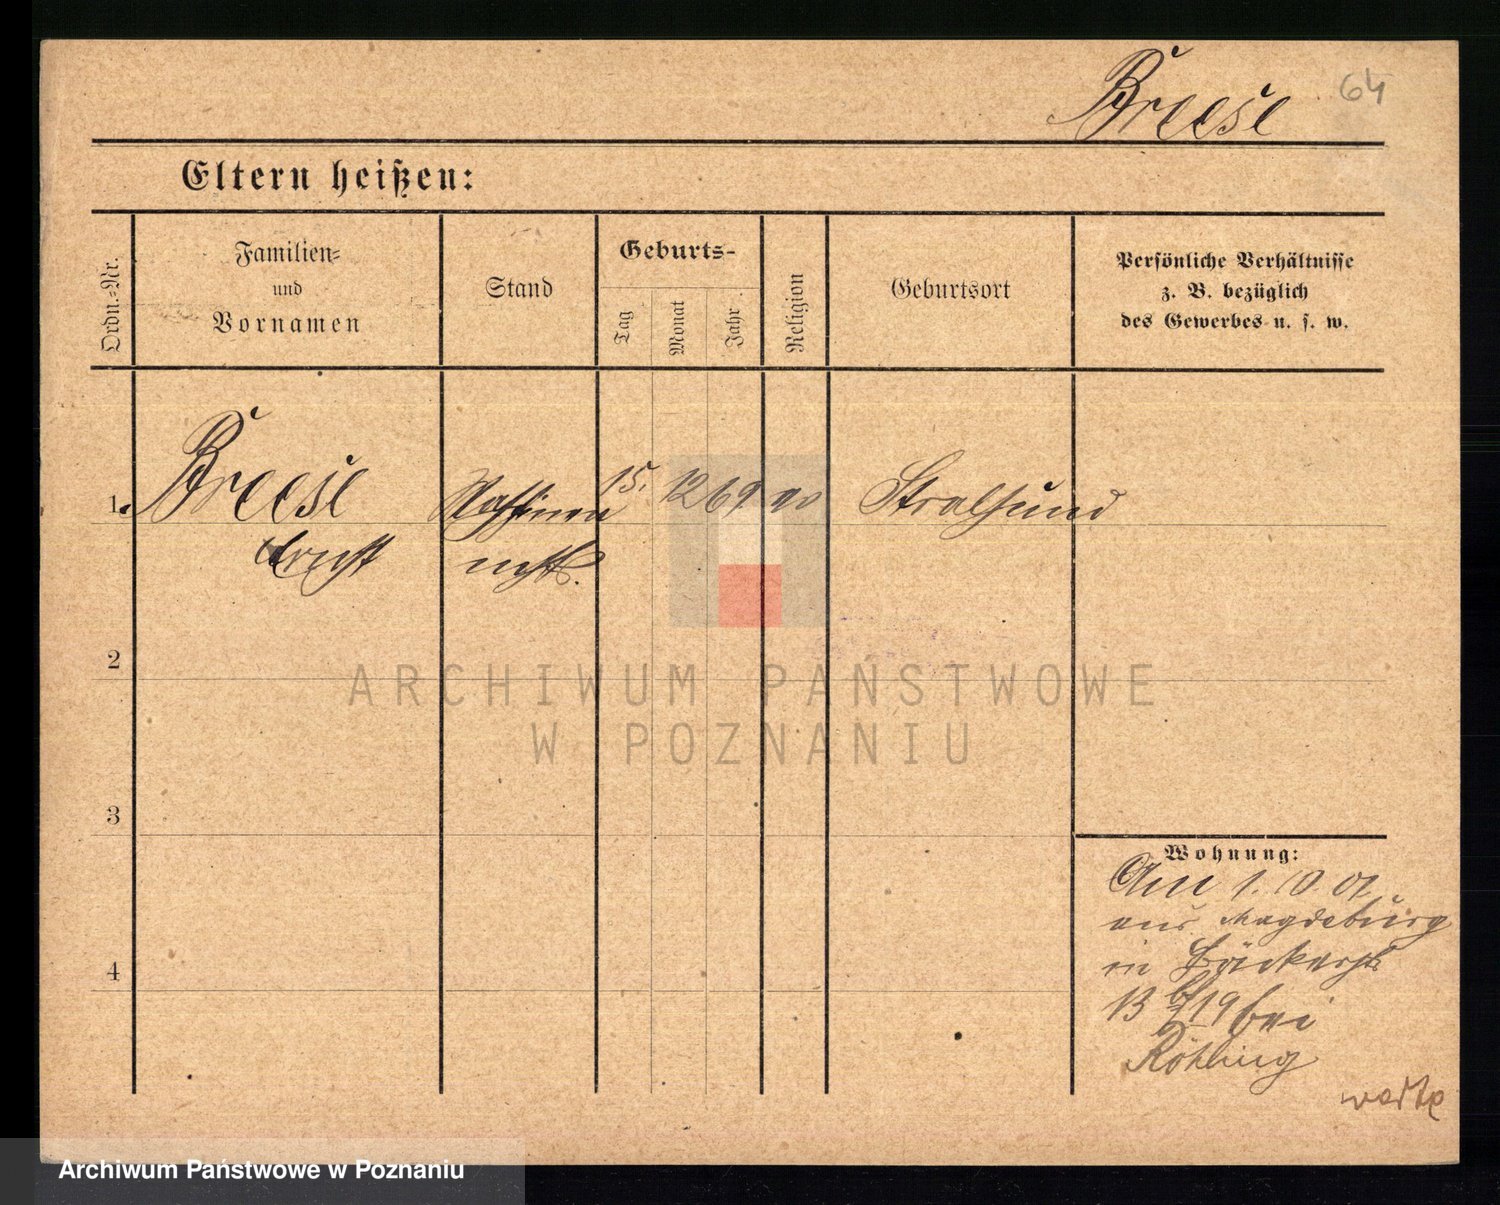 Breese 64
Eltern heißen:
Ordn.-Nr.
Familien-
und
Vornamen
Stand
Geburts-
Tag
Monat
Jahr
Religion
Geburtsort
Persönliche Verhältnisse
z. B. bezüglich
des Gewerbes u. s. w.
1. Breese 15. 12 69 Stralsund
Ernst
2
3
4
Wohnung:
Am 1. 10. 01
aus Magdeburg
in Bäckerstr
13 19 bei
Röhling
ARCHIWUM PAŃSTWOWE
W POZNANIU
Archiwum Państwowe w Poznaniu